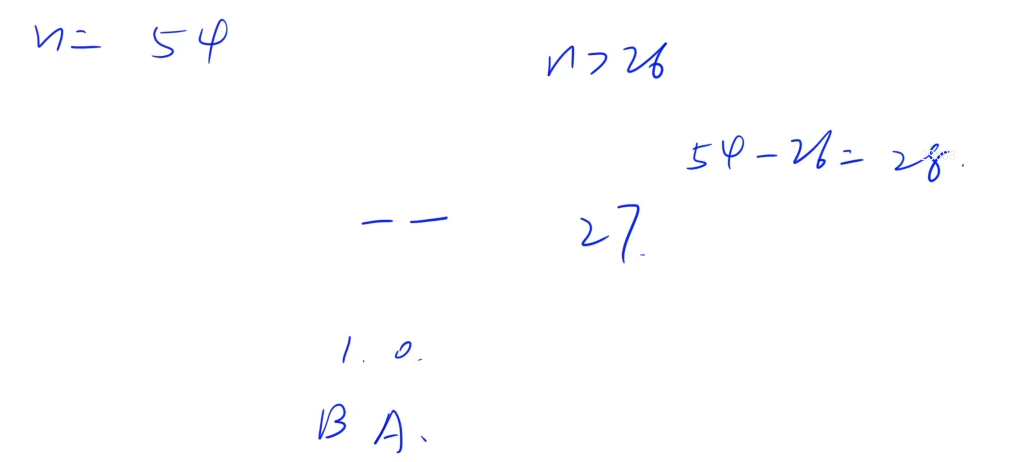 n= 54
n>26
54-26=28.
-- 27.
1. 0.
B A.